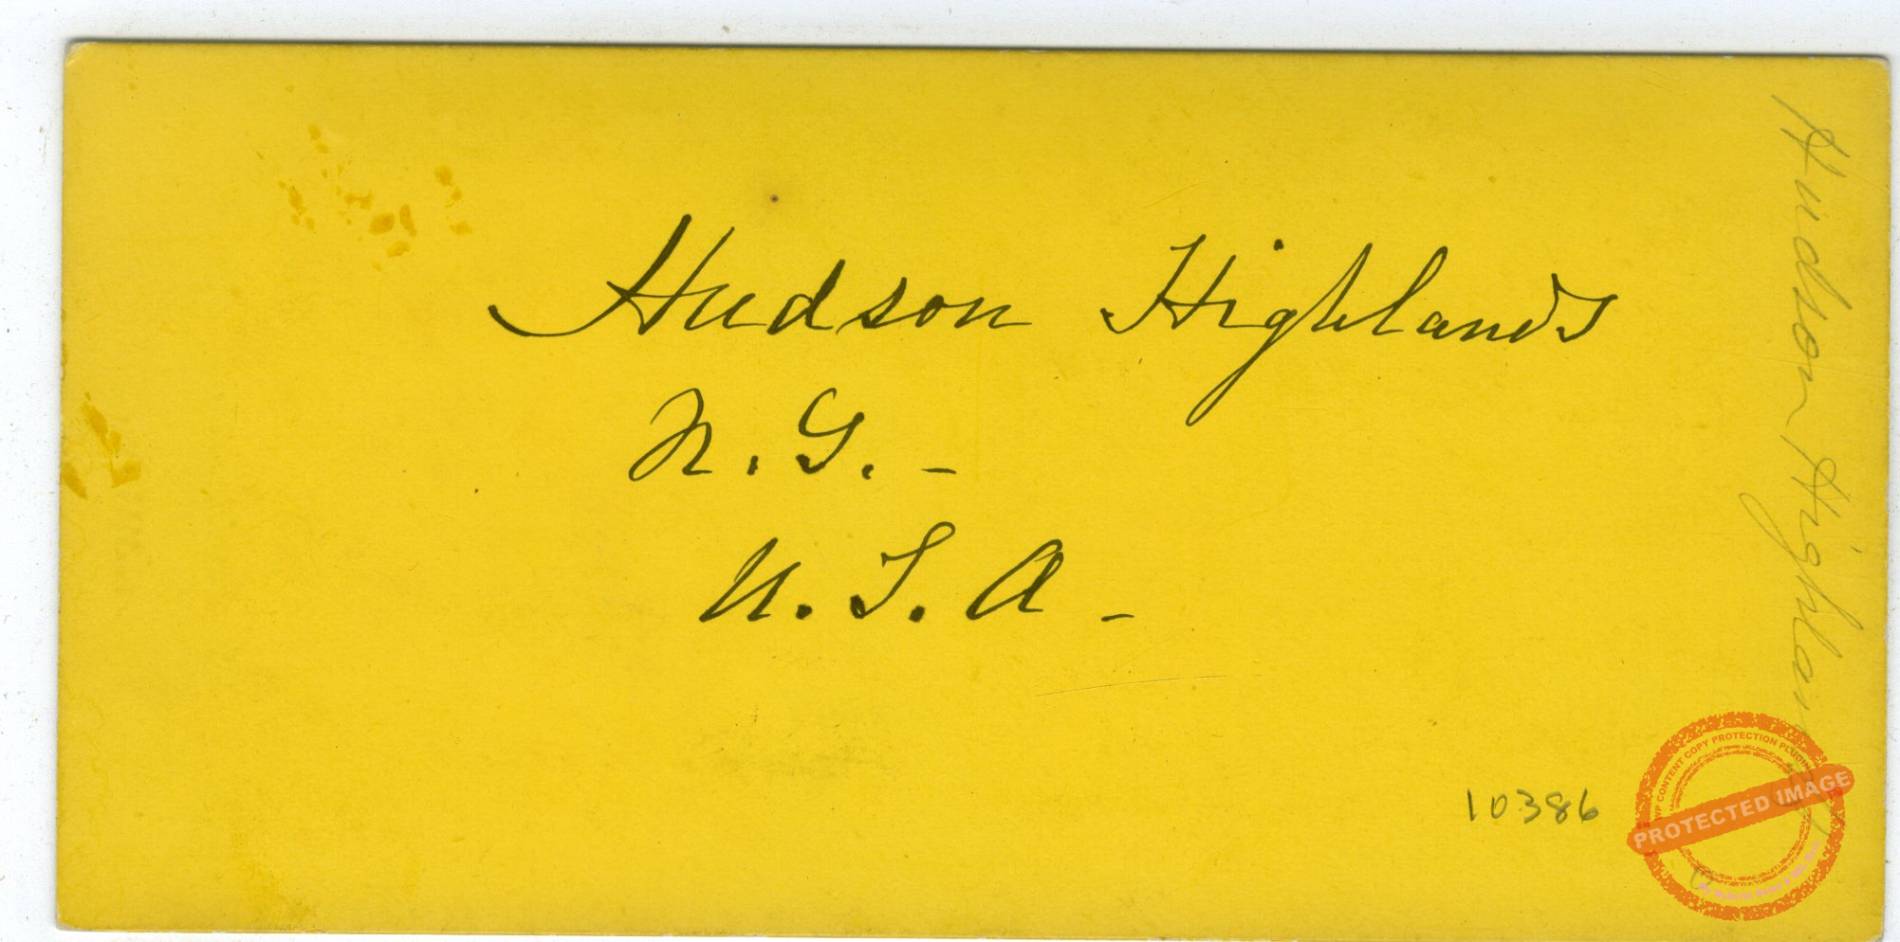 Hudson Highlands
N.Y. -
U.S.A -
Hudson Highlands
10386
WP CONTENT COPY PROTECTION PLUGIN
PROTECTED IMAGE